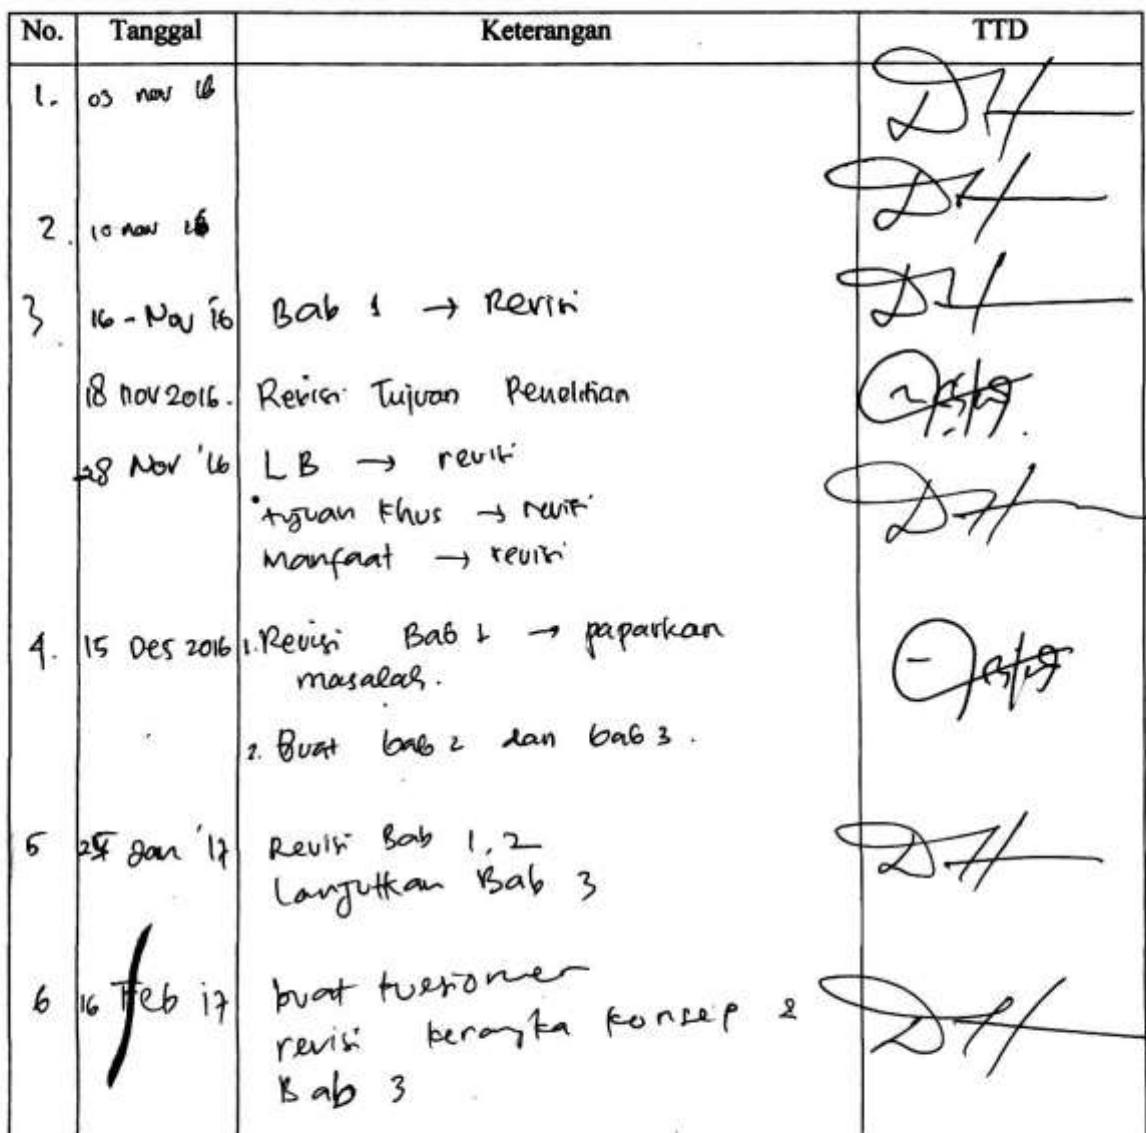 No. Tanggal Keterangan TTD
1. 03 nov 16
2. 10 nov 16
3 16 - Nov 16 Bab 1 → Revisi
18 nov 2016. Revisi Tujuan Penelitian
28 Nov '16 LB → revisi
tujuan khus → revisi
Manfaat → revisi
4. 15 Des 2016 1. Revisi Bab 1 → paparkan
masalah.
2. Buat bab 2 dan bab 3.
5 Jan '17 Revisi Bab 1, 2
Lanjutkan Bab 3
6 16 Feb 17 buat kuesioner
revisi kerangka konsep &
Bab 3